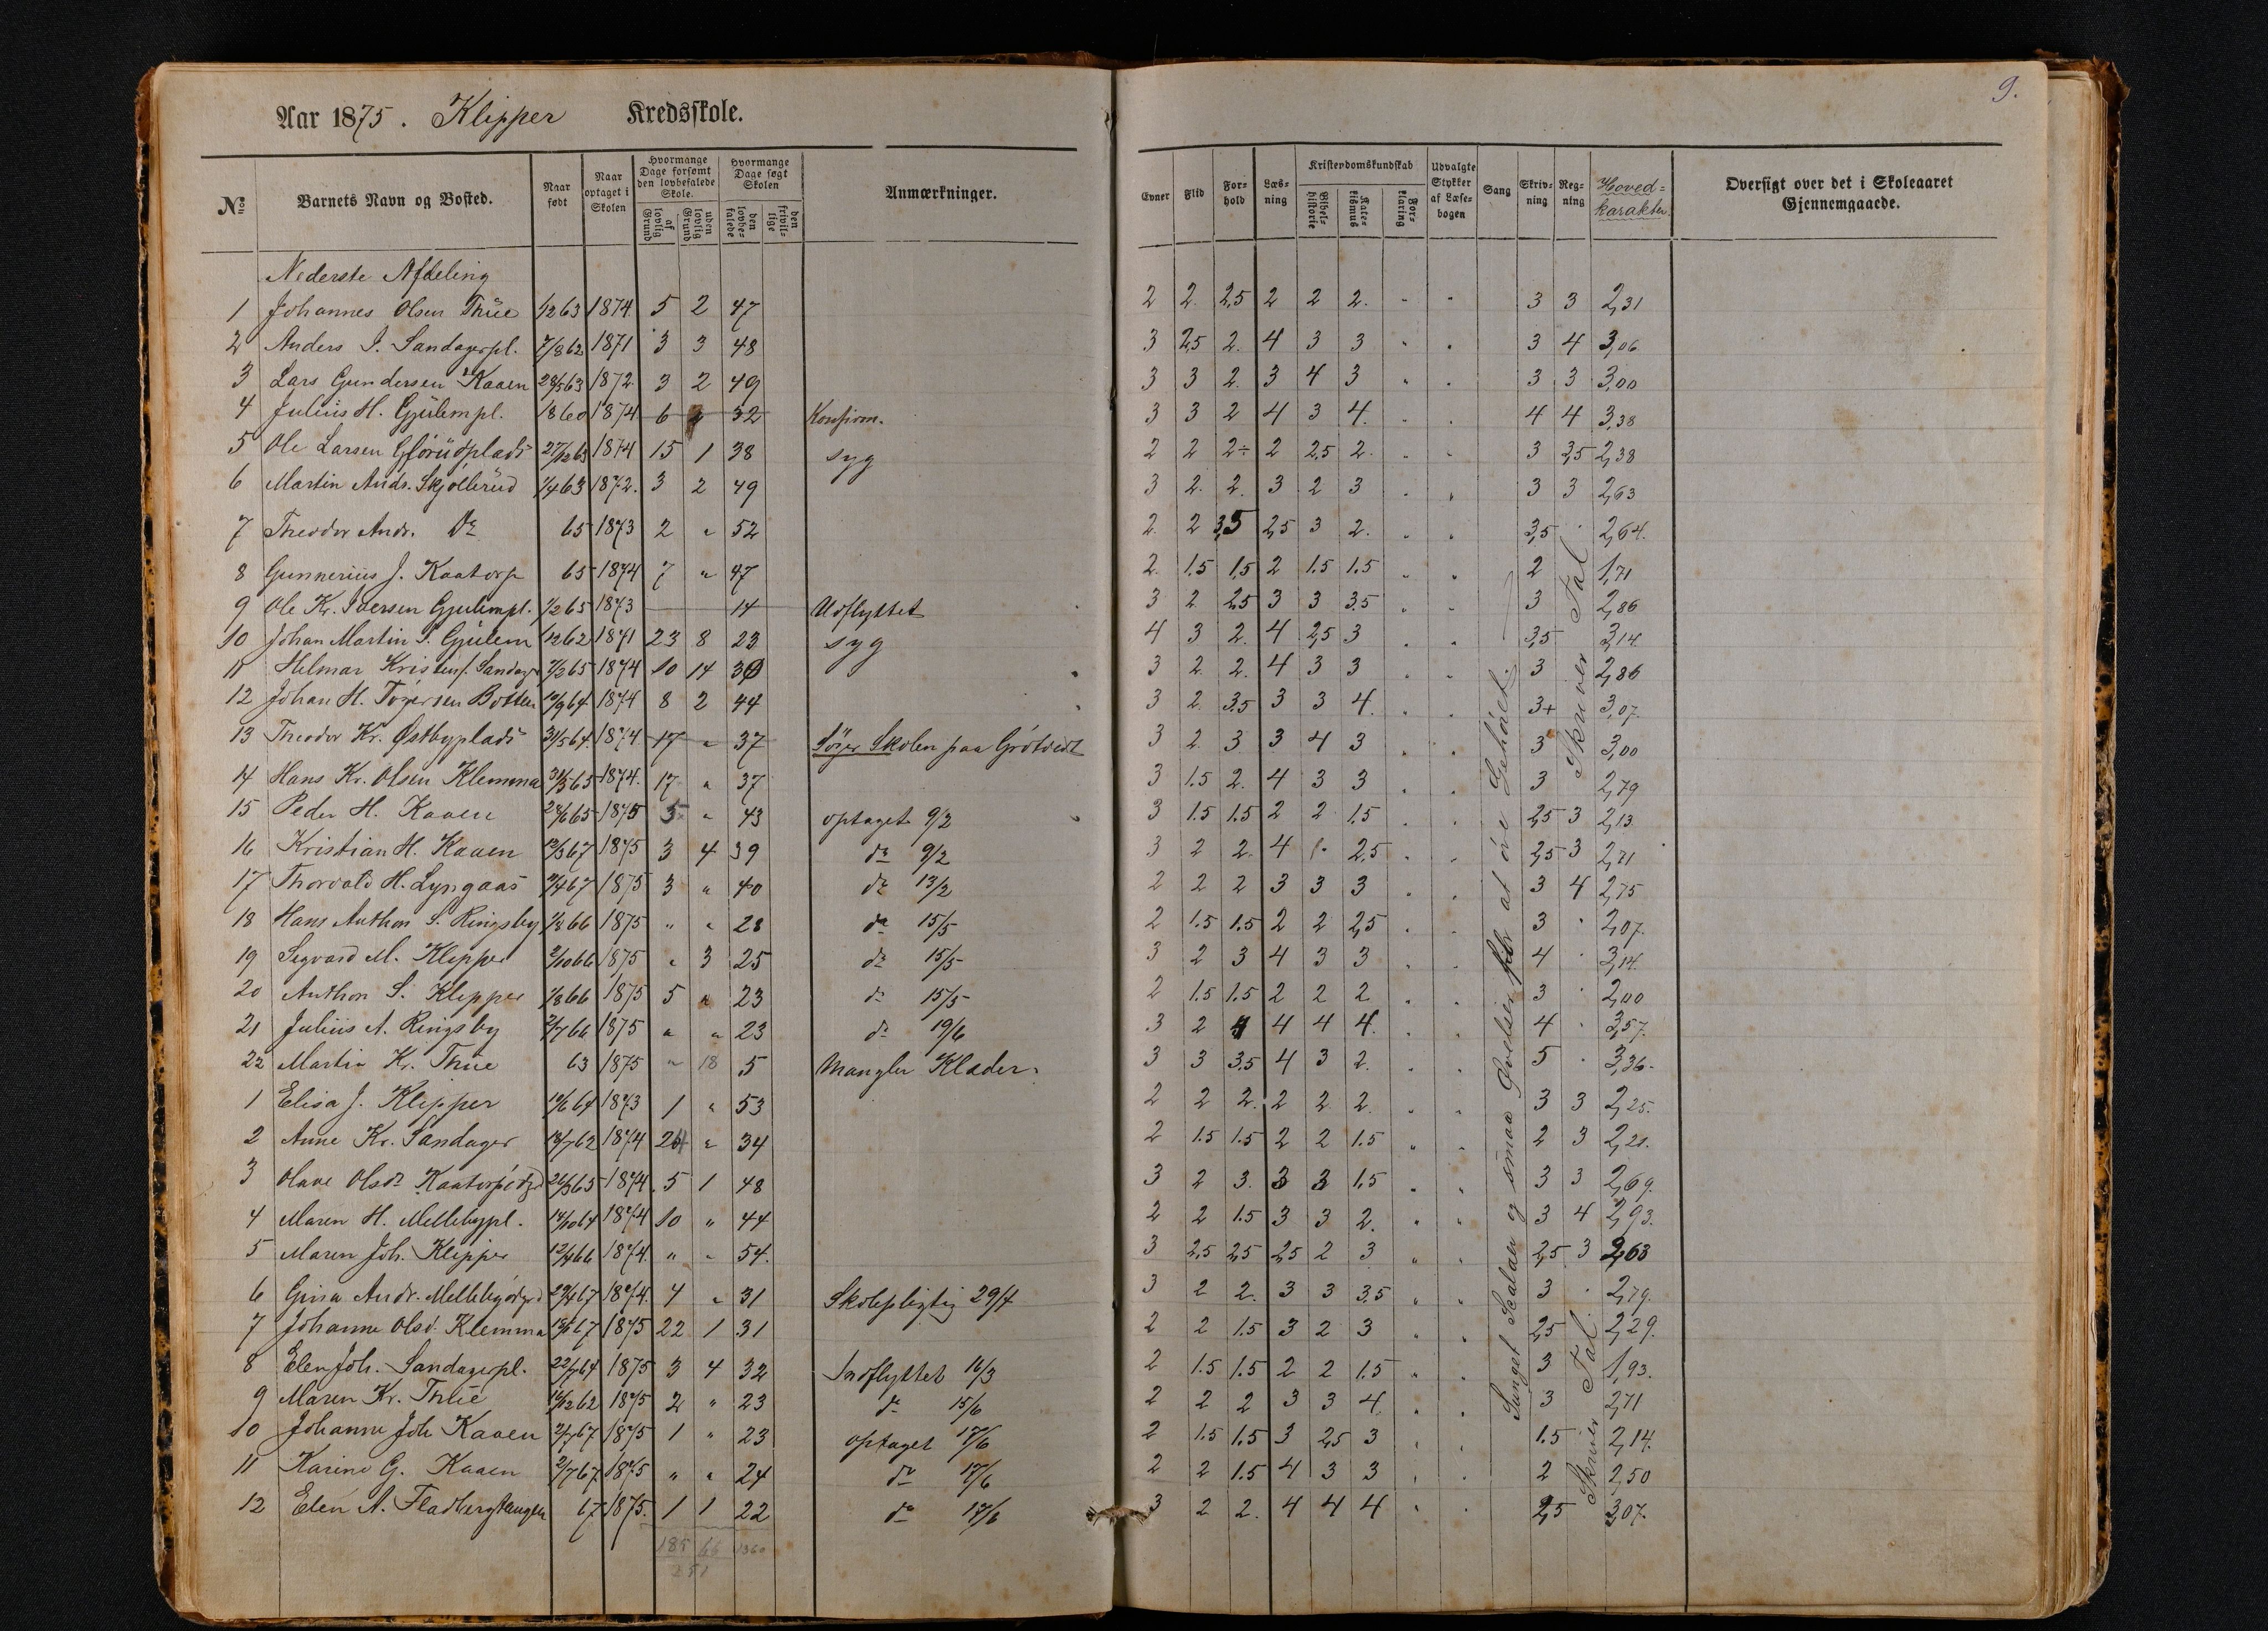 9.
Aar 1875. Klipper Kredsskole.
No Barnets Navn og Bosted. Naar født Naar optaget i Skolen Hvormange Dage forsømt den lovbefalede Skole. af lovlig Grund uden lovlig Grund Hvormange Dage søgt Skolen den lovbefalede den frivillige Anmærkninger. Evner Flid Forhold Læsning Kristendomskundskab Bibelhistorie Katekismus Forklaring Udvalgte Stykker af Læsebogen Sang Skrivning Regning Hovedkarakter. Oversigt over det i Skoleaaret Gjennemgaaede.
Nederste Afdeling
1 Johannes Olsen Thue 1/2 63 1874 5 2 47 2 2. 2,5 2 2 2. " " 3 3 2,31
2 Anders J. Sandagerpl. 7/8 62 1871 3 3 48 3 2,5 2. 4 3 3 " " 3 4 3,06
3 Lars Gundersen Kaaen 28/5 63 1872 3 2 49 3 3 2. 3 4 3 " " 3 3 3,00
4 Julius H. Gjulempl. 1860 1874 6 32 Konfirm. 3 3 2 4 3 4. " " 4 4 3,38
5 Ole Larsen Glorudplads 27/12 63 1874 15 1 38 syg 2 2 2÷ 2 2,5 2. " " 3 2,5 2,38
6 Martin Andr. Skjöllerud 1/4 63 1872. 3 2 49 3 2. 2. 3 2 3 " " 3 3 2,63
7 Theodor Andr. Do 65 1873 2 " 52 2. 2 3,5 2,5 3 2. " " 3,5 . 2,64.
8 Gunnerius J. Kaatorp 65 1874 7 " 47 2. 1.5 1,5 2 1.5 1.5 " " 2 1,71
9 Ole Kr. Iversen Gjulempl. 1/2 65 1873 14 Udflyttet 3 2 2,5 3 3 3.5 " " 3 2,86
10 Johan Martin S. Gjulem 1/12 62 1871 23 8 23 syg 4 3 2. 4 2,5 3 " " 3,5 3,14.
11 Helmar Kristiens. Sandager 7/2 65 1874 10 14 30 3 2. 2. 4 3 3 " " 3 2,86
12 Johan H. Torgersen Botten 12/9 64 1874 8 2 44 3 2. 3.5 3 3 4. " " 3+ 3,07.
13 Theodor Kr. Østbyplads 31/5 64 1874 17 " 37 Söger Skolen paa Grötvedt 3 2. 3 3 4 3 " " 3 3,00
14 Hans Kr. Olsen Klemma 31/3 65 1874. 17 " 37 3 1.5 2. 4 3 3 " " 3 2,79
15 Peder H. Kaaen 24/6 65 1875 5 " 43 optaget 9/2 3 1.5 1.5 2 2 1.5 " " 2,5 3 2,13
16 Kristian H. Kaaen 12/3 67 1875 3 4 39 do 9/2 3 2 2. 4 2,5 " " 2,5 3 2,71
17 Thorvald H. Lyngaas 4/4 67 1875 3 " 40 do 13/2 2 2 2 3 3 3 " " 3 4 2,75
18 Hans Anthon S. Ringsby 1/8 66 1875 " " 28 do 15/5 2 1.5 1.5 2 2 2,5 " " 3 . 2,07.
19 Sigvard M. Klipper 2/10 66 1875 " 3 25 do 15/5 3 2 3 4 3 3 " " 4 . 3,14.
20 Anthon S. Klipper 1/8 66 1875 5 " 23 do 15/5 2 1.5 1.5 2 2 2 " " 3 . 2,00
21 Julius A. Ringsby 2/7 66 1875 " " 23 do 19/6 3 2 4 4 4 4. " " 4 . 3,57.
22 Martin Kr. Thue 63 1875 " 18 5 Mangler Klæder. 3 3 3.5 4 3 2. " " 5 . 3,36.
1 Elisa J. Klipper 12/6 64 1873 1 " 53 2 2 2. 2 2 2. " " 3 3 2,25.
2 Anne Kr. Sandager 18/7 62 1874 24 " 34 2 1.5 1.5 2 2 1.5 " " 2 3 2,21.
3 Olave Olsd. Kaatorpödgd 26/3 65 1874. 5 1 48 3 2 3. 3 3 1.5 " " 3 3 2,69.
4 Maren H. Mellebypl. 14/10 64 1874 10 " 44 2 2 1.5 3 3 2. " " 3 4 2,93.
5 Maren Joh. Klipper 12/4 66 1874. " " 54. 3 2,5 2,5 2,5 2 3 " " 2,5 3 2,63
6 Gina Andr. Mellebyödgd 29/4 67 1874. 4 " 31 Skolepligtig 29/4 3 2 2. 3 3 3.5 " " 3 . 2,79.
7 Johanne Olsd. Klemma 18/6 67 1875 22 1 31 2 2 1.5 3 2 3 " " 2,5 2,29.
8 Elen Joh. Sandagerpl. 22/7 64 1875 3 4 32 Indflyttet 16/3 2 1.5 1.5 2 2 1.5 " " 3 1,93.
9 Maren Kr. Thue 14/12 62 1875 2 " 23 do 15/6 2 2 2 3 3 4. " " 3 2,71
10 Johanne Joh Kaaen 2/7 67 1875 1 " 23 optaget 17/6 2 1.5 1.5 3 2,5 3 " " 1.5 2,14.
11 Karine G. Kaaen 2/7 67 1875 " " 24 do 17/6 2 2 1.5 4 3 3 " " 2 2,50
12 Elen A. Fladbergshaugen 67 1875. 1 1 22 do 17/6 3 2 2. 4 4 4 " " 2,5 3,07.
185 66 1360
251
Sunget Scalaer og smaa Øvelser for at öve Gehöret.
Skriver Tal
Skriver Tal